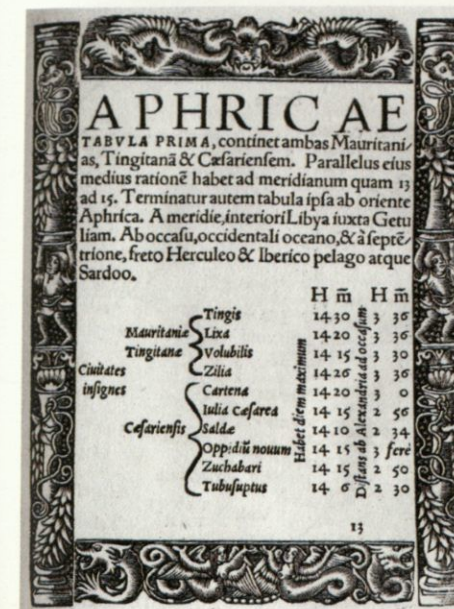 APHRICAE
TABVLA PRIMA, continet ambas Mauritani/
as, Tingitanã & Cæsariensem. Parallelus eius
medius rationẽ habet ad meridianum quam 13
ad 15. Terminatur autem tabula ipsa ab oriente
Aphrica. A meridie, interiori Libya iuxta Getu
liam. Ab occasu, occidentali oceano, & à septẽ/
trione, freto Herculeo & Iberico pelago atque
Sardoo.
H m̃ H m̃
Ciuitates insignes
Mauritaniæ Tingitanæ
Habet diem maximum
Distans ab Alexandria ad occasum
Tingis 14 30 3 36
Lixa 14 20 3 36
Volubilis 14 15 3 30
Zilia 14 26 3 36
Cæsariensis
Cartena 14 20 3 0
Iulia Cæsarea 14 15 2 56
Saldæ 14 10 2 34
Oppidiũ nouum 14 15 3 ferè
Zuchabari 14 15 2 50
Tubusuptus 14 6 2 30
13